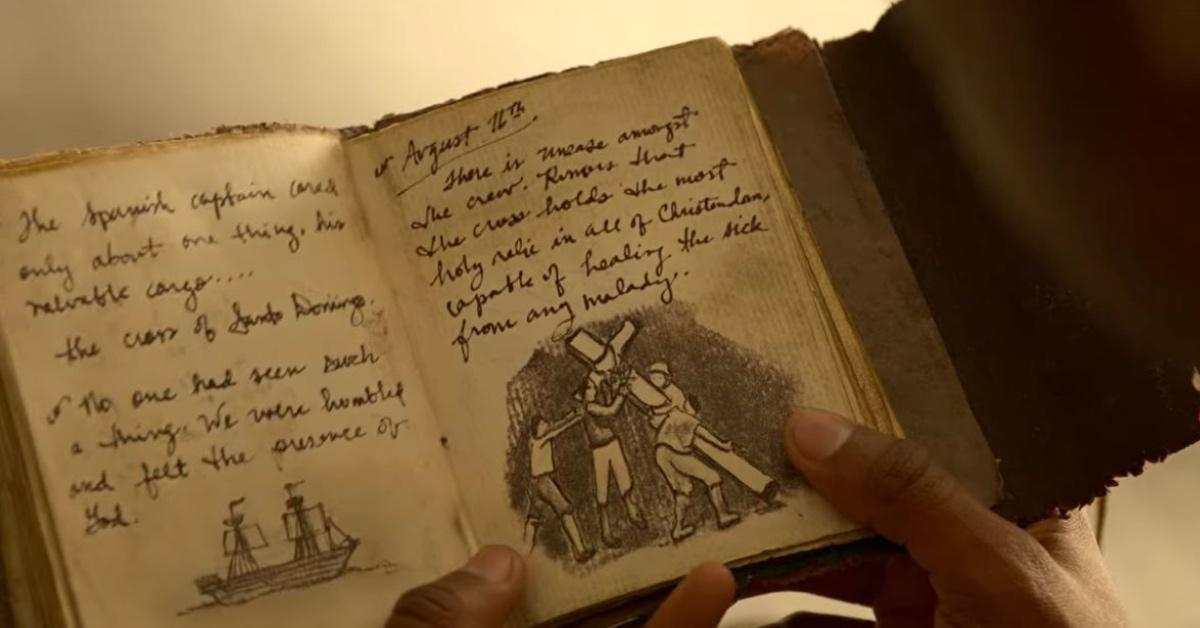 The Spanish captain cared
only about one thing, his
valuable cargo....
the cross of Santo Domingo.
No one had seen such
a thing. We were humbled
and felt the presence of
God.
August 16th
There is unease amongst
the crew. Rumors that
the cross holds the most
holy relic in all of Christendom,
capable of healing the sick
from any malady..